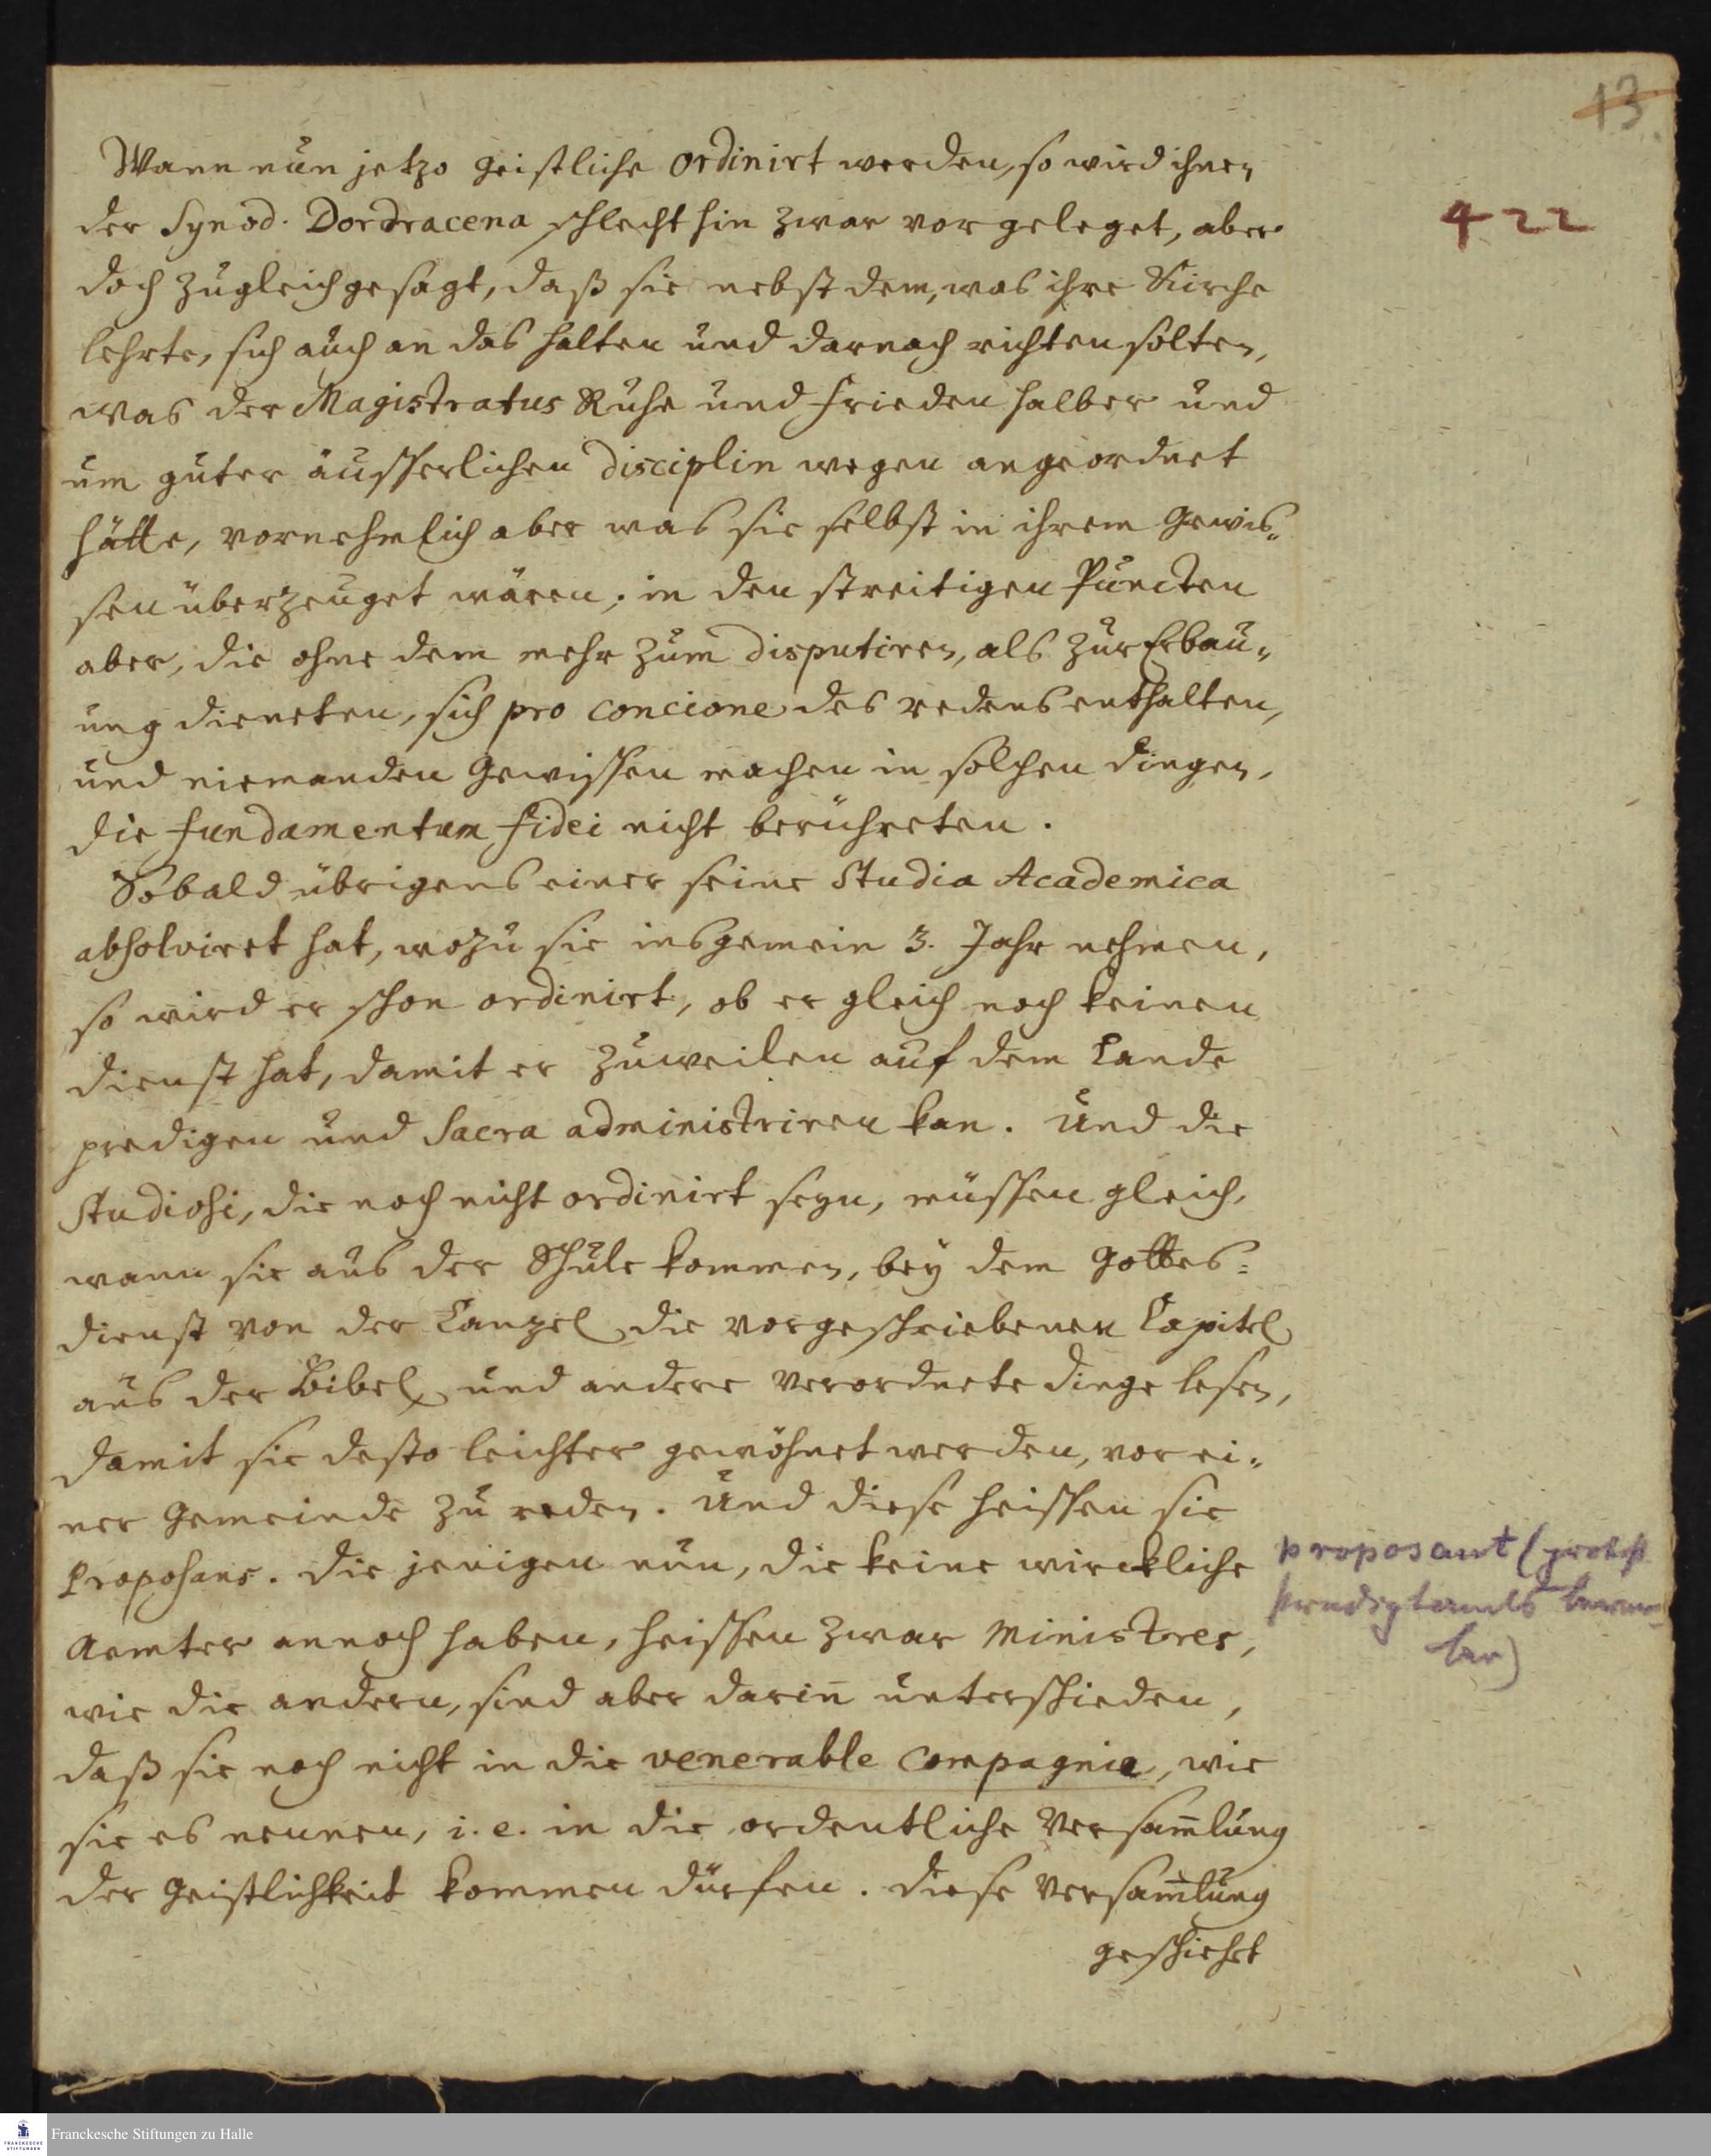 13.
422
Wann nun jetzo Geistliche ordinirt werden, so wird ihnen
der Synod. Dordracena schlechthin zwar vorgeleget, aber
doch zugleich gesagt, daß sie nebst dem, was ihre Kirche
lehrte, sich auch an das halten und darnach richten solten,
was der Magistratus Ruhe und Frieden halber und
um guter äusserlichen Disciplin wegen angeordnet
hätte, vornehmlich aber was sie selbst in ihrem Gewis„
sen überzeuget wären; in den streitigen Puncten
aber, die ohne dem mehr zum disputiren, als zur Erbau„
ung dieneten, sich pro concione des redens enthalten,
und niemanden Gewissen machen in solchen Dingen,
die fundamentum fidei nicht berühreten.
Sobald übrigens einer seine Studia Academica
absolviret hat, wozu sie insgemein 3. Jahr nehmen,
so wird er schon ordinirt, ob er gleich noch keinen
Dienst hat, damit er zuweilen auf dem Lande
predigen und Sacra administriren kan. Und die
Studiosi, die noch nicht ordinirt seyn, müssen gleich,
wann sie aus der Schule kommen, bey dem Gottes=
dienst von der Canzel die vorgeschriebenen Capitel
aus der Bibel und andere verordnete Dinge lesen,
damit sie desto leichter gewöhnet werden, vor ei„
ner Gemeinde zu reden. Und diese heissen sie
Proposans. Die jenigen nun, die keine wirckliche
Aemter annoch haben, heissen zwar Ministres,
wie die andern, sind aber darin̄ unterschieden,
daß sie noch nicht in die venerable Compagnie, wie
sie es nennen, i.e. in die ordentliche Versam̄lung
der Geistlichkeit kommen dürfen. Diese Versam̄lung
geschiehet
proposant (protest
predigtamts bewer-
ber)
Franckesche Stiftungen zu Halle